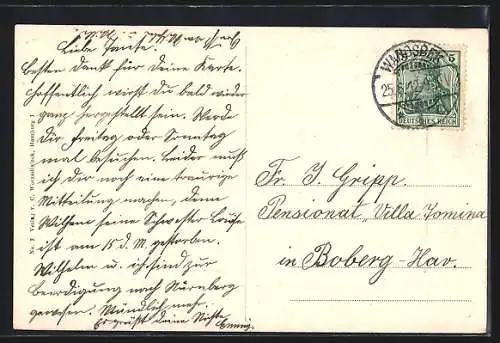 Liebe Tante.
Besten Dank für Deine Karte.
Hoffentlich wirst du bald wieder
ganz hergestellt sein. Werde
Dir Freitag oder Sonntag
mal besuchen. Leider muß
ich dir noch eine traurige
Mitteilung machen, denn
Wilhelm seine Schwester Louise
ist am 15 d. M. gestorben.
Wilhelm u. ich sind zur
Beerdigung nach Nürnberg
gewesen. Mündlich mehr.
Es grüßt deine Nichte Emmy.
WANDSBEK
25.
5
DEUTSCHES REICH
Fr. J. Gripp.
Pensionat „Villa Tomina
in Boberg-Hav.